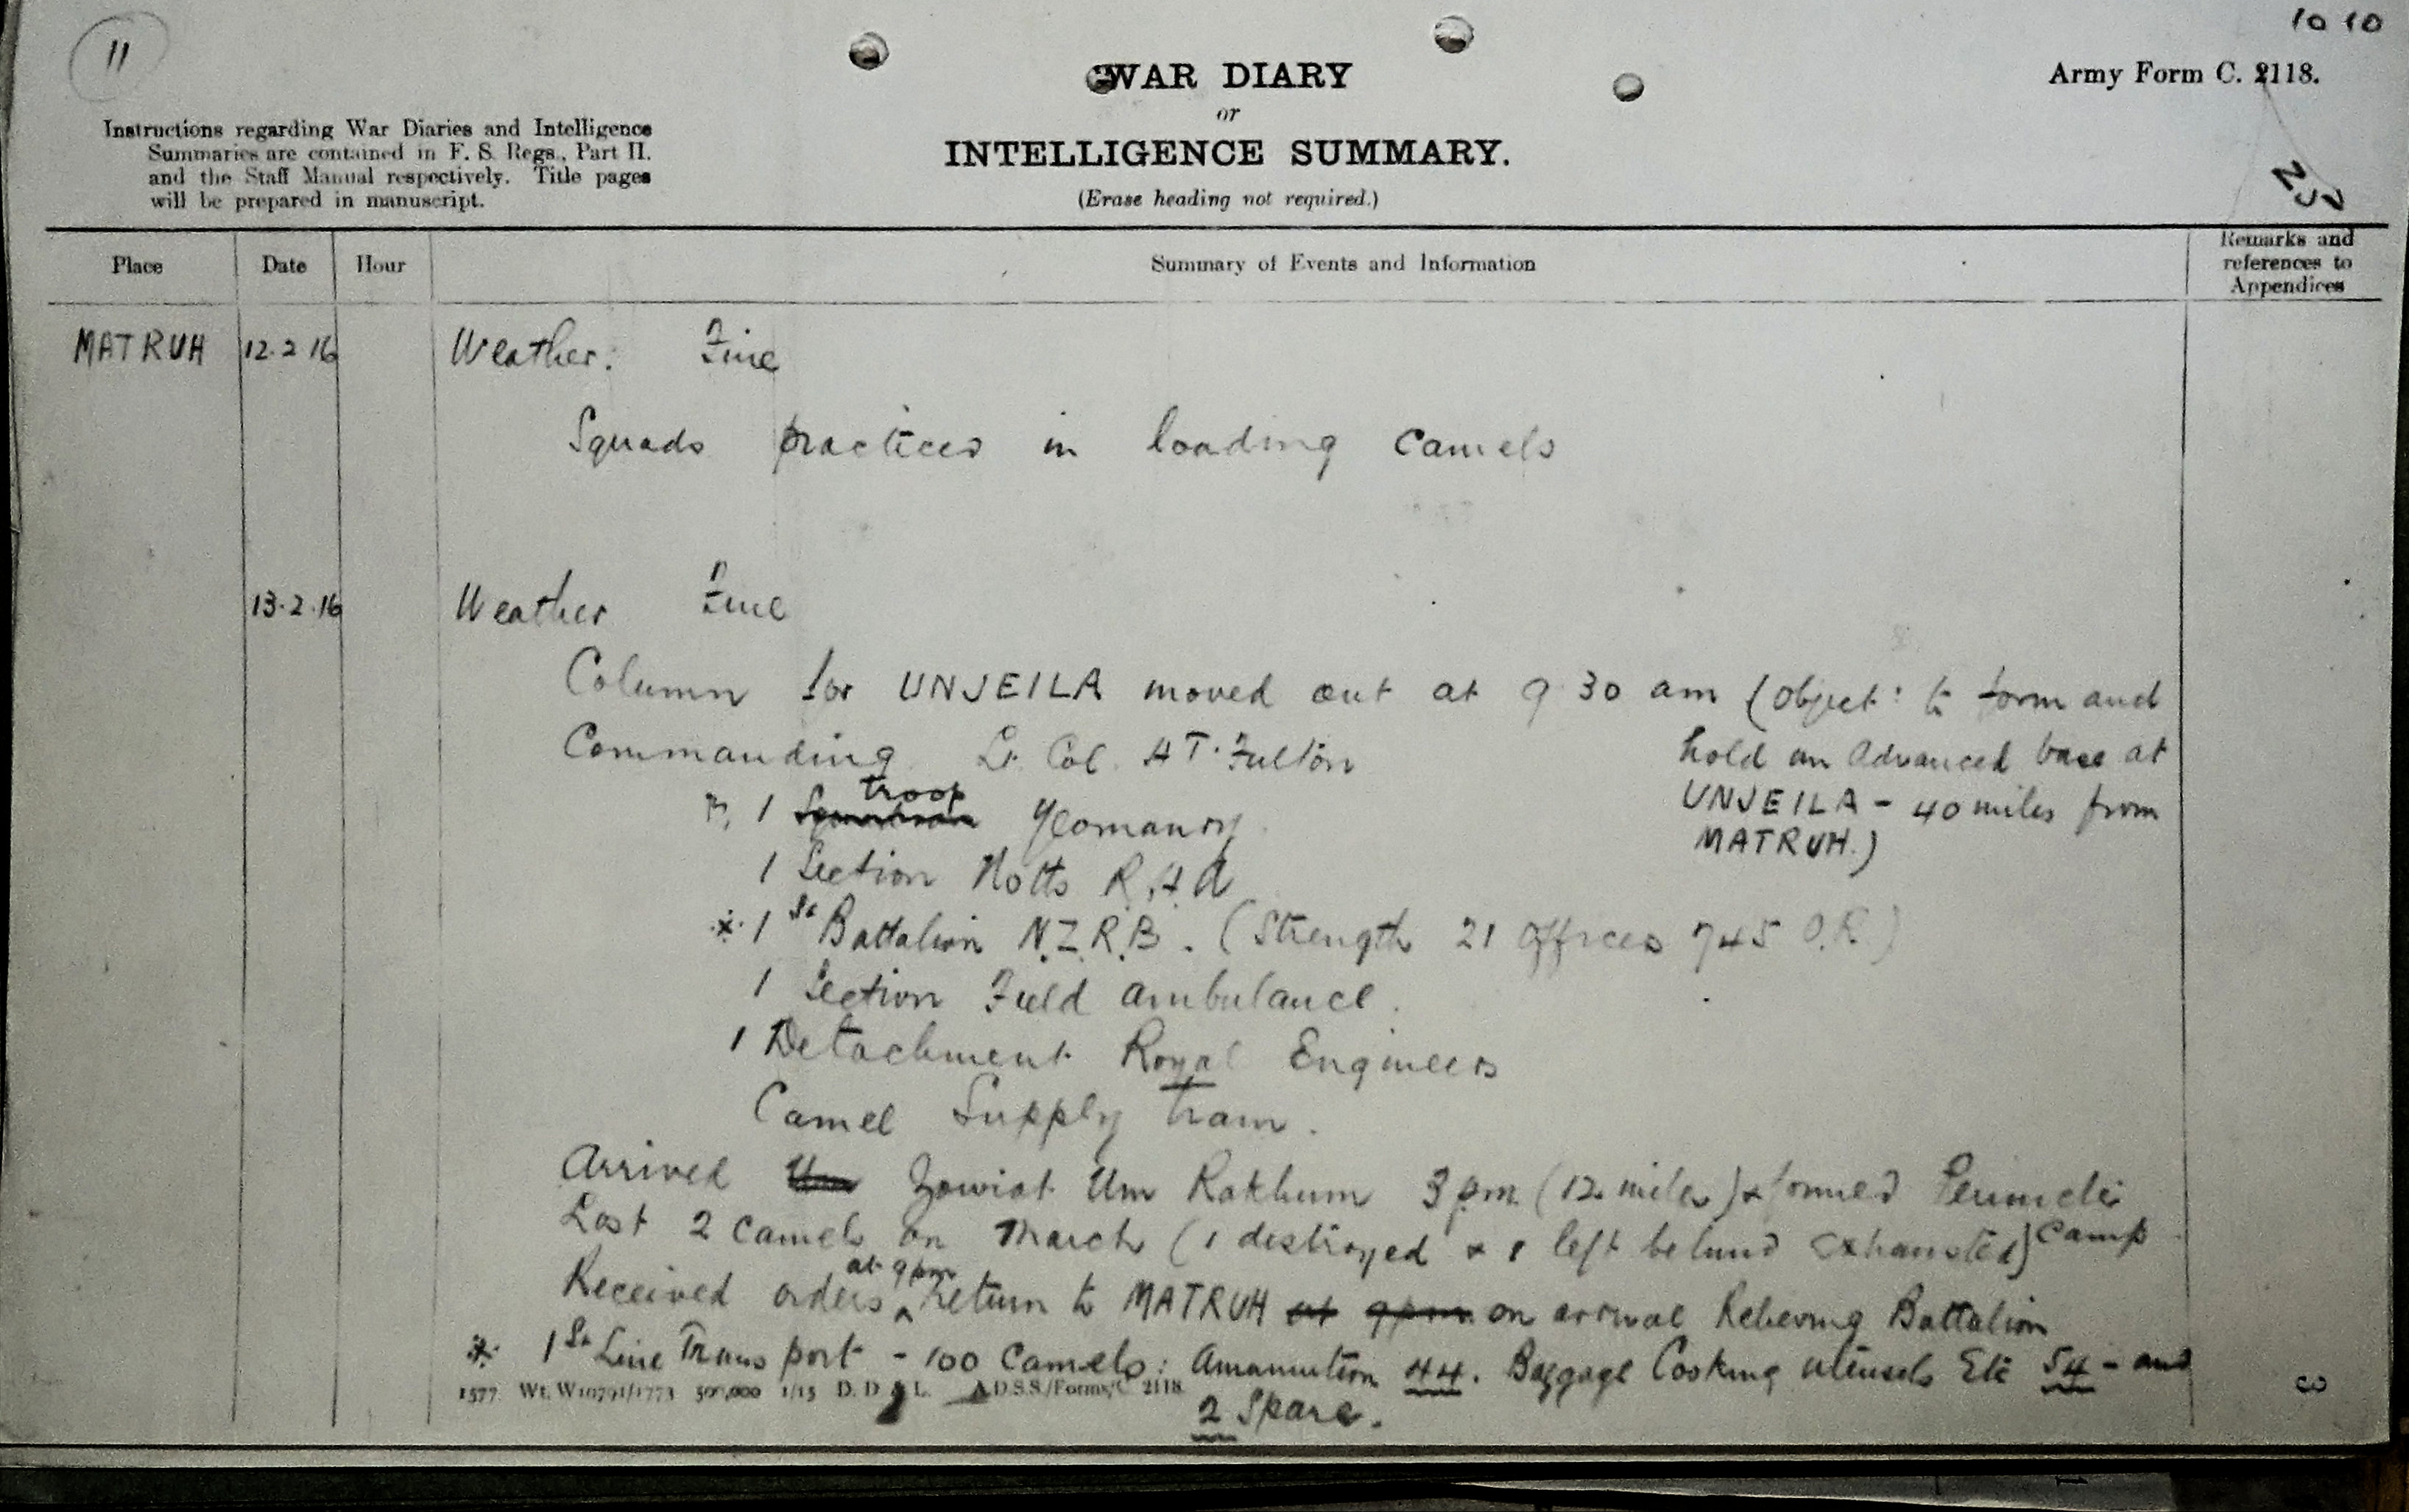 11
10 10
WAR DIARY
Army Form C. 2118.
or
INTELLIGENCE SUMMARY.
(Erase heading not required.)
Instructions regarding War Diaries and Intelligence
Summaries are contained in F. S. Regs., Part II.
and the Staff Manual respectively. Title pages
will be prepared in manuscript.
Place Date Hour Summary of Events and Information Remarks and
references to
Appendices
MATRUH 12.2 16 Weather: Fine
Squads practiced in loading Camels
13.2.16 Weather Fine
Column for UNJEILA moved out at 9 30 am (Object: to form and
hold an Advanced base at
UNJEILA - 40 miles from
MATRUH.)
Commanding Lt. Col. H T. Fulton
1 Squadron troop Yeomanry
1 Section Notts R.H.A
* 1st Battalion N.Z.R.B. (Strength 21 Officers 745 O.R.)
1 Section Field Ambulance.
1 Detachment Royal Engineers
Camel Supply train.
Arrived Um Zowiat Um Rakhum 3 pm (12 miles) & formed Perimeter
Camp
Lost 2 camels on March (1 destroyed & 1 left behind exhausted)
Received orders at 9pm return to MATRUH at 9pm on arrival Relieving Battalion
* 1st Line Transport - 100 Camels: Amamution 44. Baggage Cooking utensils Etc 54 - and
2 Spare.
1577 Wt. W10791/1773 500,000 1/15 D. D & L. A.D.S.S./Forms/C. 2118.